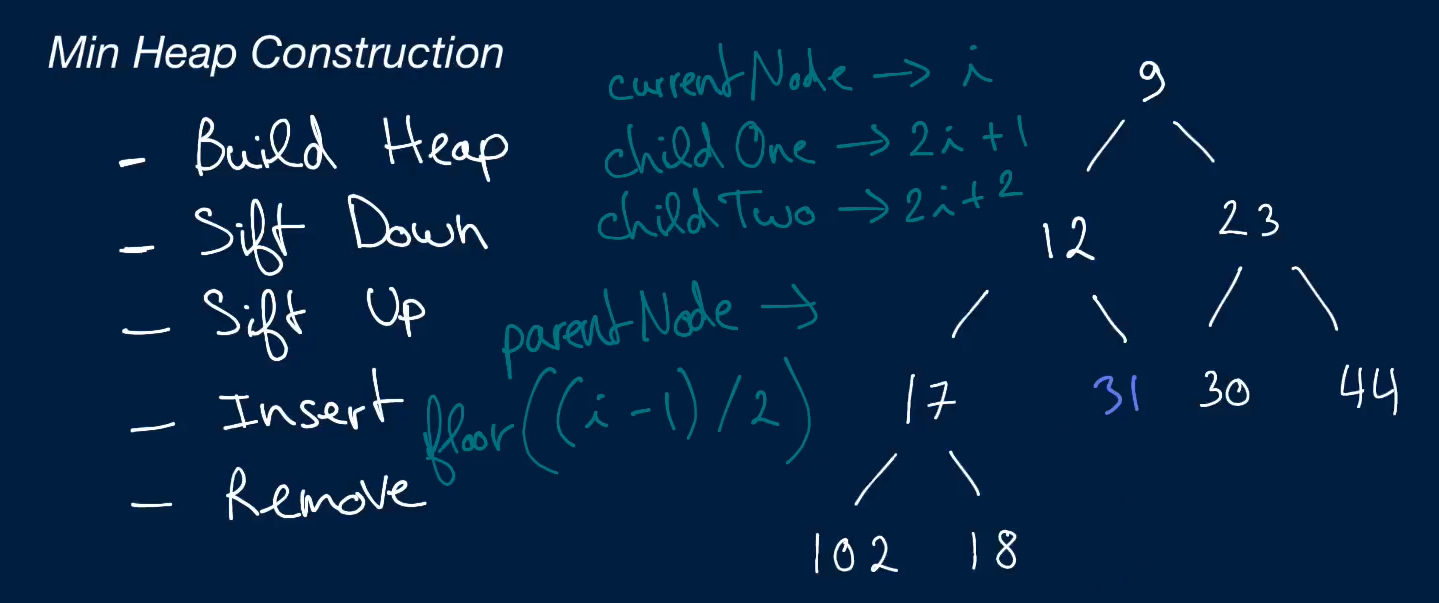 Min Heap Construction
- Build Heap
- Sift Down
- Sift Up
- Insert
- Remove
currentNode → i
childOne → 2i+1
childTwo → 2i+2
parentNode →
floor((i-1)/2)
9
12 23
17 31 30 44
102 18